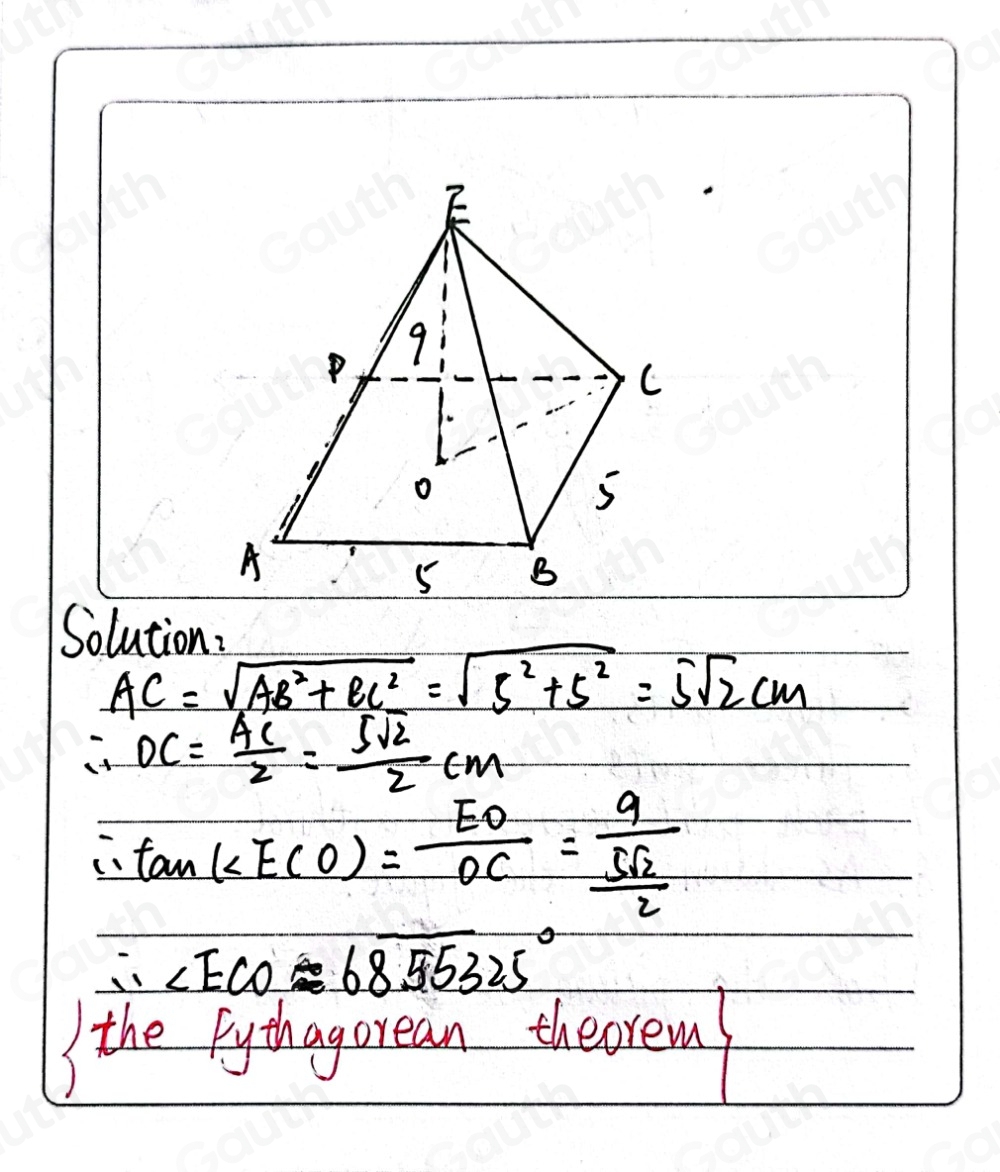 E
9
P
C
O
5
A
5
B
Solution:
AC = √(AB² + BC²) = √(5² + 5²) = 5√2 cm
∴ OC = AC/2 = 5√2/2 cm
∴ tan(<ECO) = EO/OC = 9/(5√2/2)
∴ <ECO ≈ 68.55325°
{the Pythagorean theorem}
Gauth